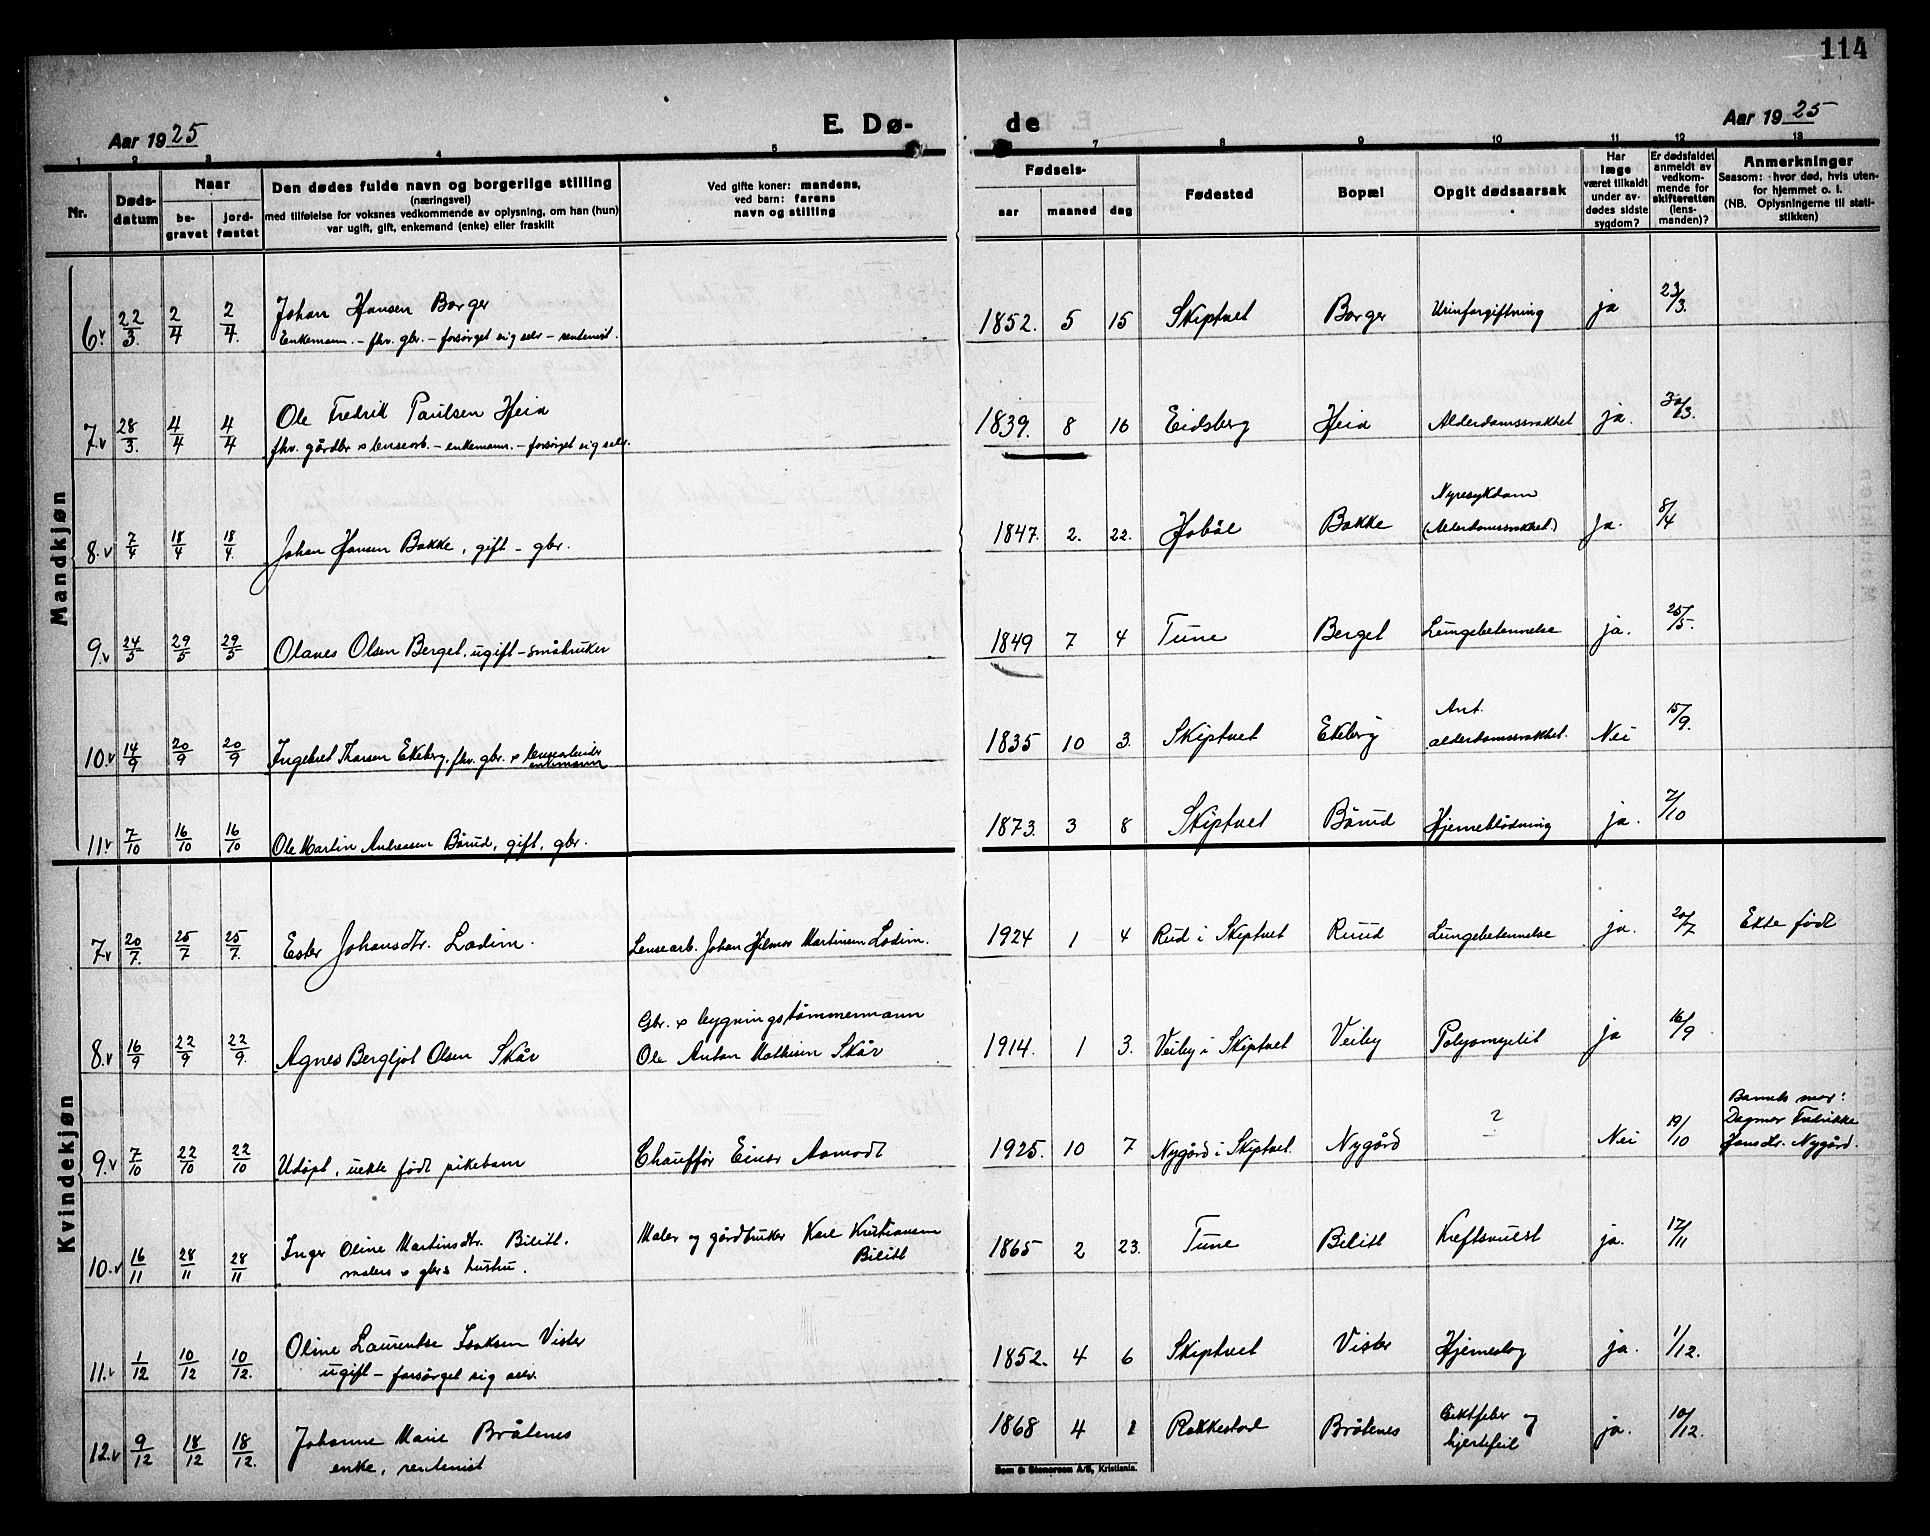 114
Aar 1925
E. Dø-
de
Aar 1925
1 2 3 4 5 7 8 9 10 11 12 13
Nr.
Døds-
datum
Naar
be-
gravet
jord-
fæstet
Den dødes fulde navn og borgerlige stilling
(næringsvei)
med tilføielse for voksnes vedkommende av oplysning, om han (hun)
var ugift, gift, enkemand (enke) eller fraskilt
Ved gifte koner: mandens,
ved barn: farens
navn og stilling
Fødsels-
aar
maaned
dag
Fødested
Bopæl
Opgit dødsaarsak
Har
læge
været tilkaldt
under av-
dødes sidste
sygdom?
Er dødsfaldet
anmeldt av
vedkom-
mende for
skifteretten
(lens-
manden)?
Anmerkninger
Saasom: hvor død, hvis uten-
for hjemmet o. l.
(NB. Oplysningerne til stati-
stikken)
Mandkjøn
6v 22/3. 2/4 2/4. Johan Hansen Borger 1852. 5 15 Skiptvet Borger Urinforgiftning ja 23/3.
Enkemann. - fhv. gbr. - forsørget sig selv - rentenist.
7v 28/3. 4/4 4/4 Ole Fredrik Paulsen Heia 1839. 8 16 Eidsberg Heia Alderdomssvakhet ja. 30/3.
fhv. gårdbr & lensearb. - enkemann. - forsørget sig selv.
Nyresykdom
8.v 7/4 18/4 18/4. Johan Hansen Bakke, gift - gbr. 1847. 2. 22. Hobøl Bakke (Alderdomssvakhet) Ja. 8/4
9.v 24/5 29/5 29/5 Olaves Olsen Berget, ugift - småbruker 1849 7 4 Tune Berget Lungebetennelse ja. 25/5.
Ant.
10.v 14/9 20/9 20/9 Ingebret Thorsen Ekeberg, fhv. gbr. & lensearbeider 1835 10 3. Skiptvet Ekeberg alderdomssvakhet. Nei 15/9.
enkemann
11.v 7/10 16/10 16/10 Ole Martin Andreassen Børud, gift, gbr. 1873. 3 8 Skiptvet Børud Hjerneblødning ja. 7/10
Kvindekjøn
7v 20/7. 25/7 25/7. Ester Johansdtr. Lodim. Lensearb. Johan Hilmar Martinsen Lodim. 1924 1 4 Rud i Skiptvet Ruud Lungebetennelse ja. 20/7 Ekte født
Gbr. & bygningstømmermann
8.v 16/9 22/9 22/9. Agnes Bergljot Olsen Skår Ole Anton Mathisen Skår 1914. 1 3. Veiby i Skiptvet Veiby Polyomyelit ja 16/9
9.v 7/10 22/10 22/10 Udøpt, uekte født pikebarn Chauffør Einar Aamodt 1925. 10 7 Nygård i Skiptvet. Nygård ? Nei 19/10 Barnets mor:
Dagmar Fredrikke
Hansdtr. Nygård.
10.v 16/11 28/11 28/11 Inger Oline Martinsdtr. Bilitt. Maler og gårdbruker Karl Kristiansen 1865 2 23. Tune Bilitt Kreftsvulst ja. 17/11
malers & gbrs hustru. Bilitt
11.v 1/12 10/12 10/12. Oline Laurentse Isaksen Vister 1852. 4 6 Skiptvet Vister Hjerneslag ja. 1/12.
ugift - forsørget sig selv.
12.v 9/12 18/12 18/12. Johanne Marie Bråtenes 1868 4 1 Rakkestad Bråtenes Giktfeber og ja. 10/12.
enke, rentenist hjertefeil
Sem & Stenersen A/S, Kristiania.